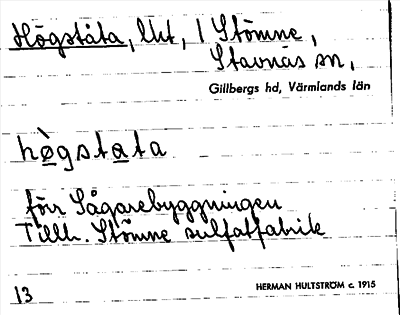 Högståta, lht, / Stömne,
Stavnäs sn,
Gillbergs hd, Värmlands län
hògstata
förr Sågarebyggningen
Tillh. Stömne sulfatfabrik
13
HERMAN HULTSTRÖM c. 1915